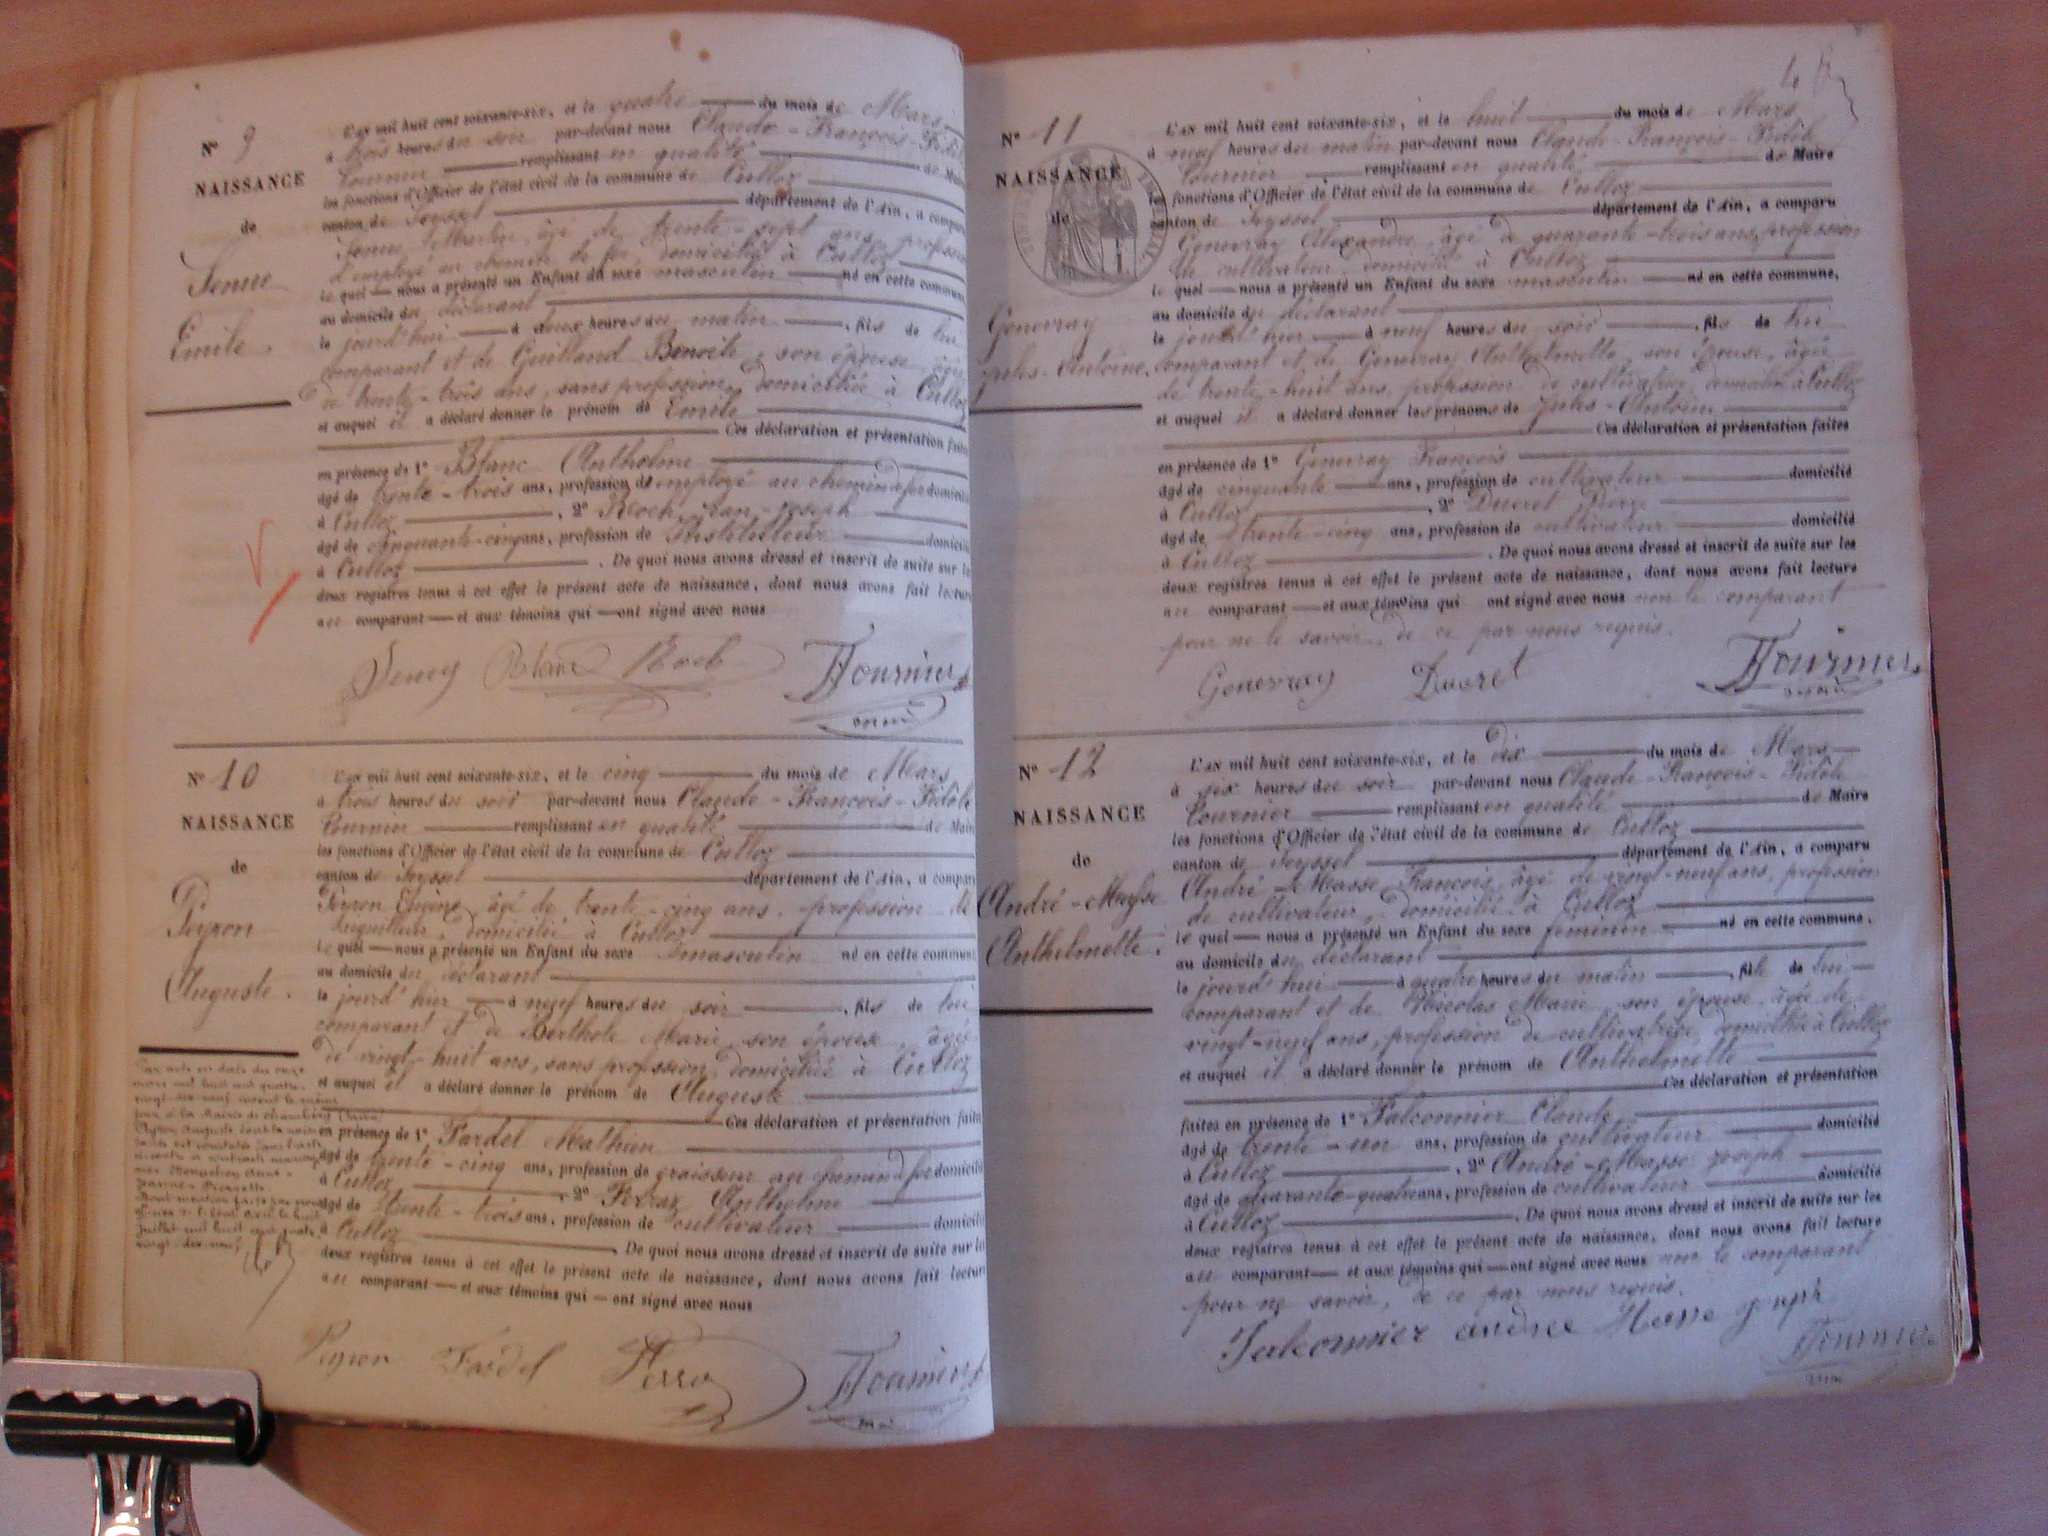 N° 9
NAISSANCE
de
Emile.
L'an mil huit cent soixante-six, et le quatre du mois de Mars
à trois heures du soir par-devant nous Claude-François-Fidèle
Fournier remplissant en qualité de Maire
les fonctions d'Officier de l'état civil de la commune de Culloz
canton de Seyssel département de l'Ain, a comparu
Martin, âgé de trente-sept ans, profession
d'employé au chemin de fer, domicilié à Culloz
le quel nous a présenté un Enfant du sexe masculin né en cette commune,
au domicile du déclarant
le jourd'hui à deux heures du matin, fils de lui
comparant et de Guilland Benoite, son épouse, âgée
de trente-trois ans, sans profession, domiciliée à Culloz
et auquel il a déclaré donner le prénom de Emile
Ces déclaration et présentation faites
en présence de 1° Blanc Anthelme
âgé de trente-trois ans, profession d'employé au chemin de fer domicilié
à Culloz, 2° Roch Jean-Joseph
âgé de cinquante-cinq ans, profession de Instituteur domicilié
à Culloz. De quoi nous avons dressé et inscrit de suite sur les
deux registres tenus à cet effet le présent acte de naissance, dont nous avons fait lecture
au comparant et aux témoins qui ont signé avec nous
Blanc Roch Fournier
maire
N° 10
NAISSANCE
de
Peyron
Auguste.
L'an mil huit cent soixante-six, et le cinq du mois de Mars
à trois heures du soir par-devant nous Claude-François-Fidèle
Fournier remplissant en qualité de Maire
les fonctions d'Officier de l'état civil de la commune de Culloz
canton de Seyssel département de l'Ain, a comparu
Peyron Eugène, âgé de trente-cinq ans, profession de
domicilié à Culloz
le quel nous a présenté un Enfant du sexe masculin né en cette commune,
au domicile du déclarant
le jourd'hier à neuf heures du soir, fils de lui
comparant et de Berthole Marie, son épouse, âgée
de vingt-huit ans, sans profession, domiciliée à Culloz
et auquel il a déclaré donner le prénom de Auguste
Ces déclaration et présentation faites
en présence de 1° Fardel Mathieu
âgé de trente-cinq ans, profession de graisseur au chemin de fer domicilié
à Culloz, 2° Ferraz Anthelme
âgé de trente-trois ans, profession de cultivateur domicilié
à Culloz. De quoi nous avons dressé et inscrit de suite sur les
deux registres tenus à cet effet le présent acte de naissance, dont nous avons fait lecture
au comparant et aux témoins qui ont signé avec nous
Peyron Fardel Ferraz Fournier
N° 11
NAISSANCE
de
Genevray
Jules-Antoine.
L'an mil huit cent soixante-six, et le huit du mois de Mars
à neuf heures du matin par-devant nous Claude-François-Fidèle
Fournier remplissant en qualité de Maire
les fonctions d'Officier de l'état civil de la commune de Culloz
canton de Seyssel département de l'Ain, a comparu
Genevray Alexandre, âgé de quarante-trois ans, profession
de cultivateur, domicilié à Culloz
le quel nous a présenté un Enfant du sexe masculin né en cette commune,
au domicile du déclarant
le jourd'hier à neuf heures du soir, fils de lui
comparant et de Genevray Anthelmette, son épouse, âgée
de trente-huit ans, profession de cultivatrice, domiciliée à Culloz
et auquel il a déclaré donner les prénoms de Jules-Antoine
Ces déclaration et présentation faites
en présence de 1° Genevray François
âgé de cinquante ans, profession de cultivateur domicilié
à Culloz, 2° Ducret Pierre
âgé de trente-cinq ans, profession de cultivateur domicilié
à Culloz. De quoi nous avons dressé et inscrit de suite sur les
deux registres tenus à cet effet le présent acte de naissance, dont nous avons fait lecture
au comparant et aux témoins qui ont signé avec nous non le comparant
pour ne le savoir, de ce par nous requis.
Genevray Ducret Fournier
maire
N° 12
NAISSANCE
de
André-Masse
Anthelmette.
L'an mil huit cent soixante-six, et le dix du mois de Mars
à six heures du soir par-devant nous Claude-François-Fidèle
Fournier remplissant en qualité de Maire
les fonctions d'Officier de l'état civil de la commune de Culloz
canton de Seyssel département de l'Ain, a comparu
André-Masse François, âgé de vingt-neuf ans, profession
de cultivateur, domicilié à Culloz
le quel nous a présenté un Enfant du sexe féminin né en cette commune,
au domicile du déclarant
le jourd'hui à quatre heures du matin, fille de lui
comparant et de Nicolas Marie, son épouse, âgée de
vingt-neuf ans, profession de cultivatrice, domiciliée à Culloz
et auquel il a déclaré donner le prénom de Anthelmette
Ces déclaration et présentation
faites en présence de 1° Falconnier Claude
âgé de trente-un ans, profession de cultivateur domicilié
à Culloz, 2° André-Masse Joseph
âgé de quarante-quatre ans, profession de cultivateur domicilié
à Culloz. De quoi nous avons dressé et inscrit de suite sur les
deux registres tenus à cet effet le présent acte de naissance, dont nous avons fait lecture
au comparant et aux témoins qui ont signé avec nous non le comparant
pour ne savoir, de ce par nous requis.
Falconnier andre Masse joseph
Fournier